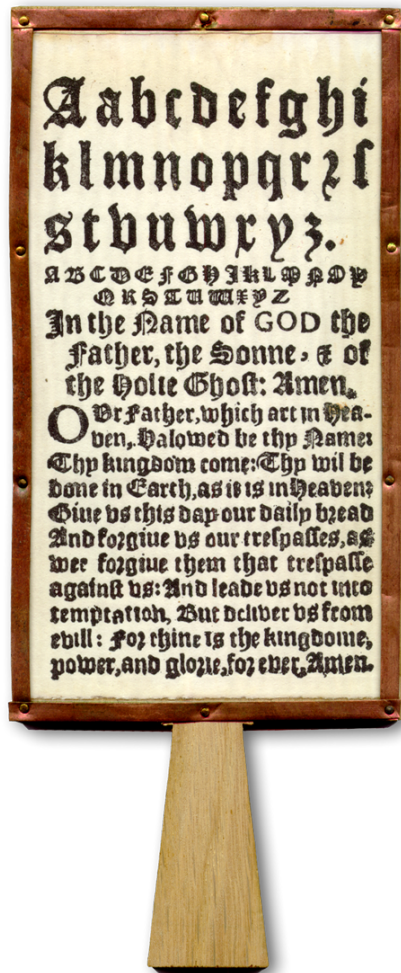 Aabcdefghi
klmnopqrꝛſ
stvuwxyz.
ABCDEFGHIKLMNOP
QRSTUWXYZ
In the Name of GOD the
Father, the Sonne, & of
the Holie Ghoſt: Amen.
OUr Father, which art in Hea-
ven, Halowed be thy Name:
Thy kingdom come: Thy wil be
done in Earth, as it is in Heaven:
Giue vs this day our daily bꝛead
And foꝛgiue vs our treſpaſſes, as
wee foꝛgiue them that treſpaſſe
againſt vs: And leade vs not into
temptation, But deliver vs from
evill: Foꝛ thine is the kingdome,
power, and gloꝛie, foꝛ ever, Amen.